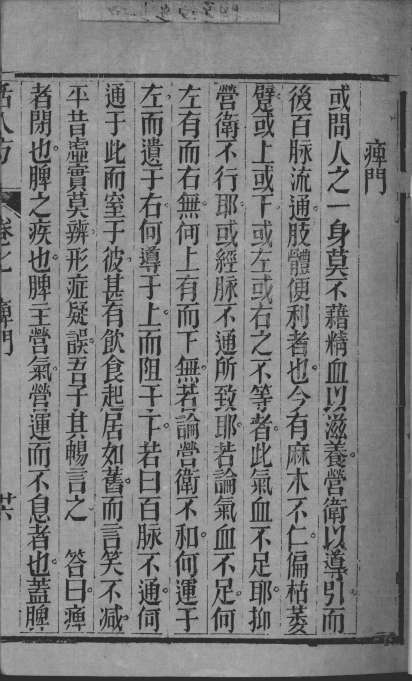 痺門
或問人之一身莫不藉精血以滋養營衛以導引而
後百脉流通肢體便利者也今有麻木不仁偏枯萎
躄或上或下或左或右之不等者此氣血不足耶抑
營衛不行耶或經脉不通所致耶若論氣血不足何
左有而右無何上有而下無若論營衛不和何運于
左而遺于右何導于上而阻于下若曰百脉不通何
通于此而窒于彼甚有飲食起居如舊而言笑不减
平昔虛實莫辨形症疑誤吾子其暢言之 答曰痺
者閉也脾之疾也脾主營氣營運而不息者也蓋脾
活人方 卷七 痺門